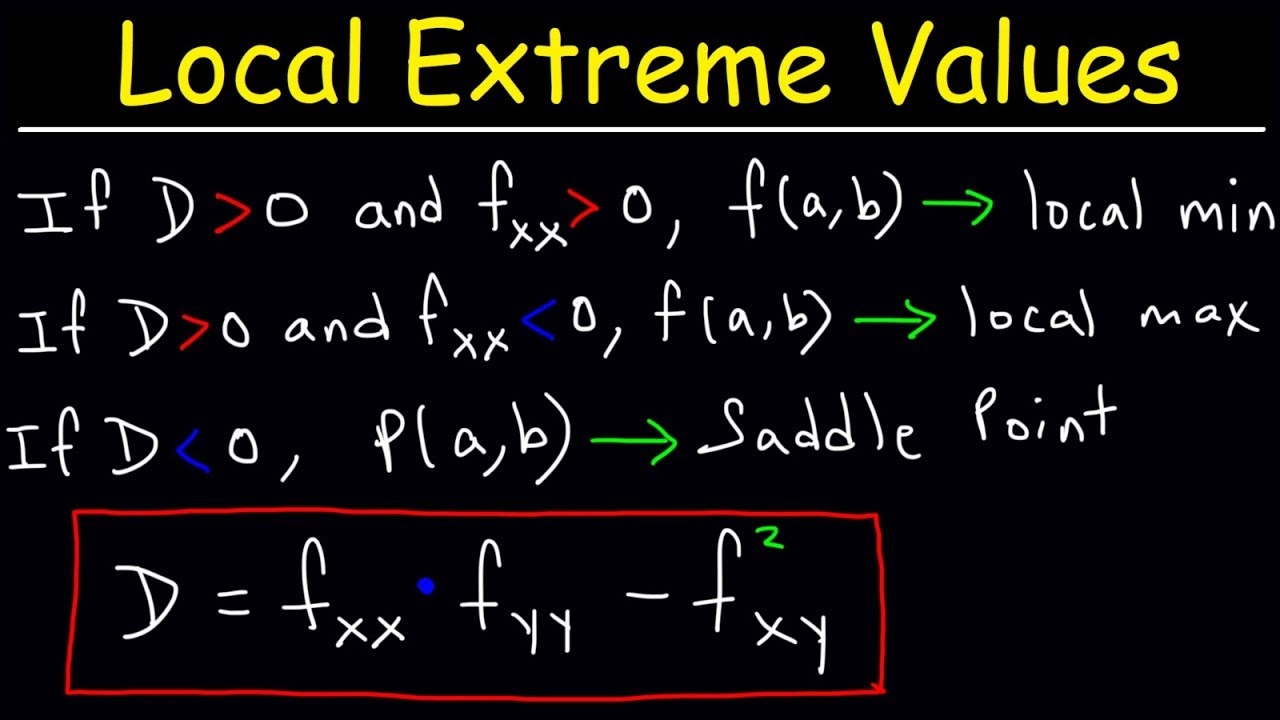 Local Extreme Values
If D > 0 and fₓₓ > 0, f(a,b) → local min
If D > 0 and fₓₓ < 0, f(a,b) → local max
If D < 0, P(a,b) → Saddle Point
D = f_xx · f_yy − f_xy²